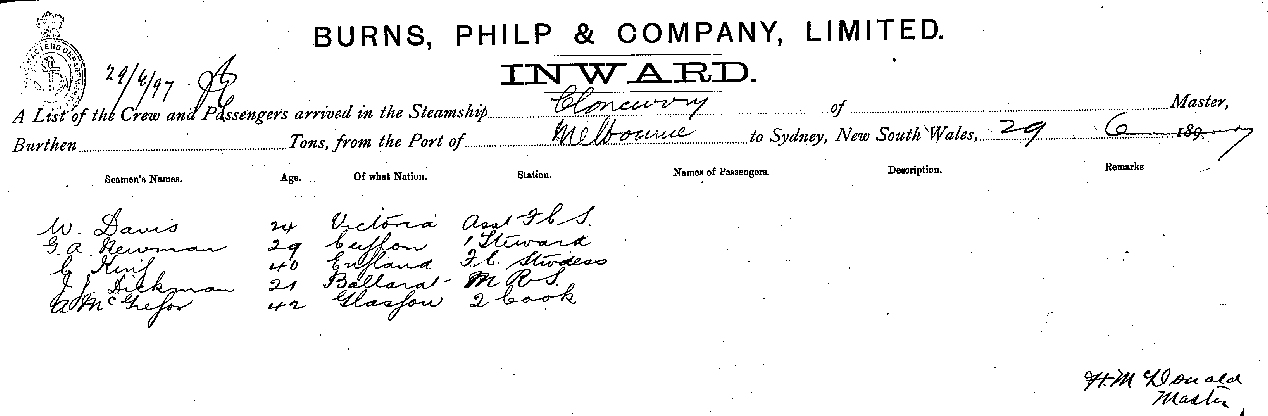 BURNS, PHILP & COMPANY, LIMITED.
INWARD.
29/6/97
A List of the Crew and Passengers arrived in the Steamship Cloncurry of Master,
Burthen Tons, from the Port of Melbourne to Sydney, New South Wales, 29 6 1897
Seamen's Names. Age. Of what Nation. Station. Names of Passengers. Description. Remarks
W. Davis 24 Victoria Asst F C S.
G. A. Newman 29 1 Steward
C King 40 England F. C. Stwdess
J. Dickman 21 Ballarat M R S.
A McGregor 42 Glasgow 2 Cook
H. McDonald
Master